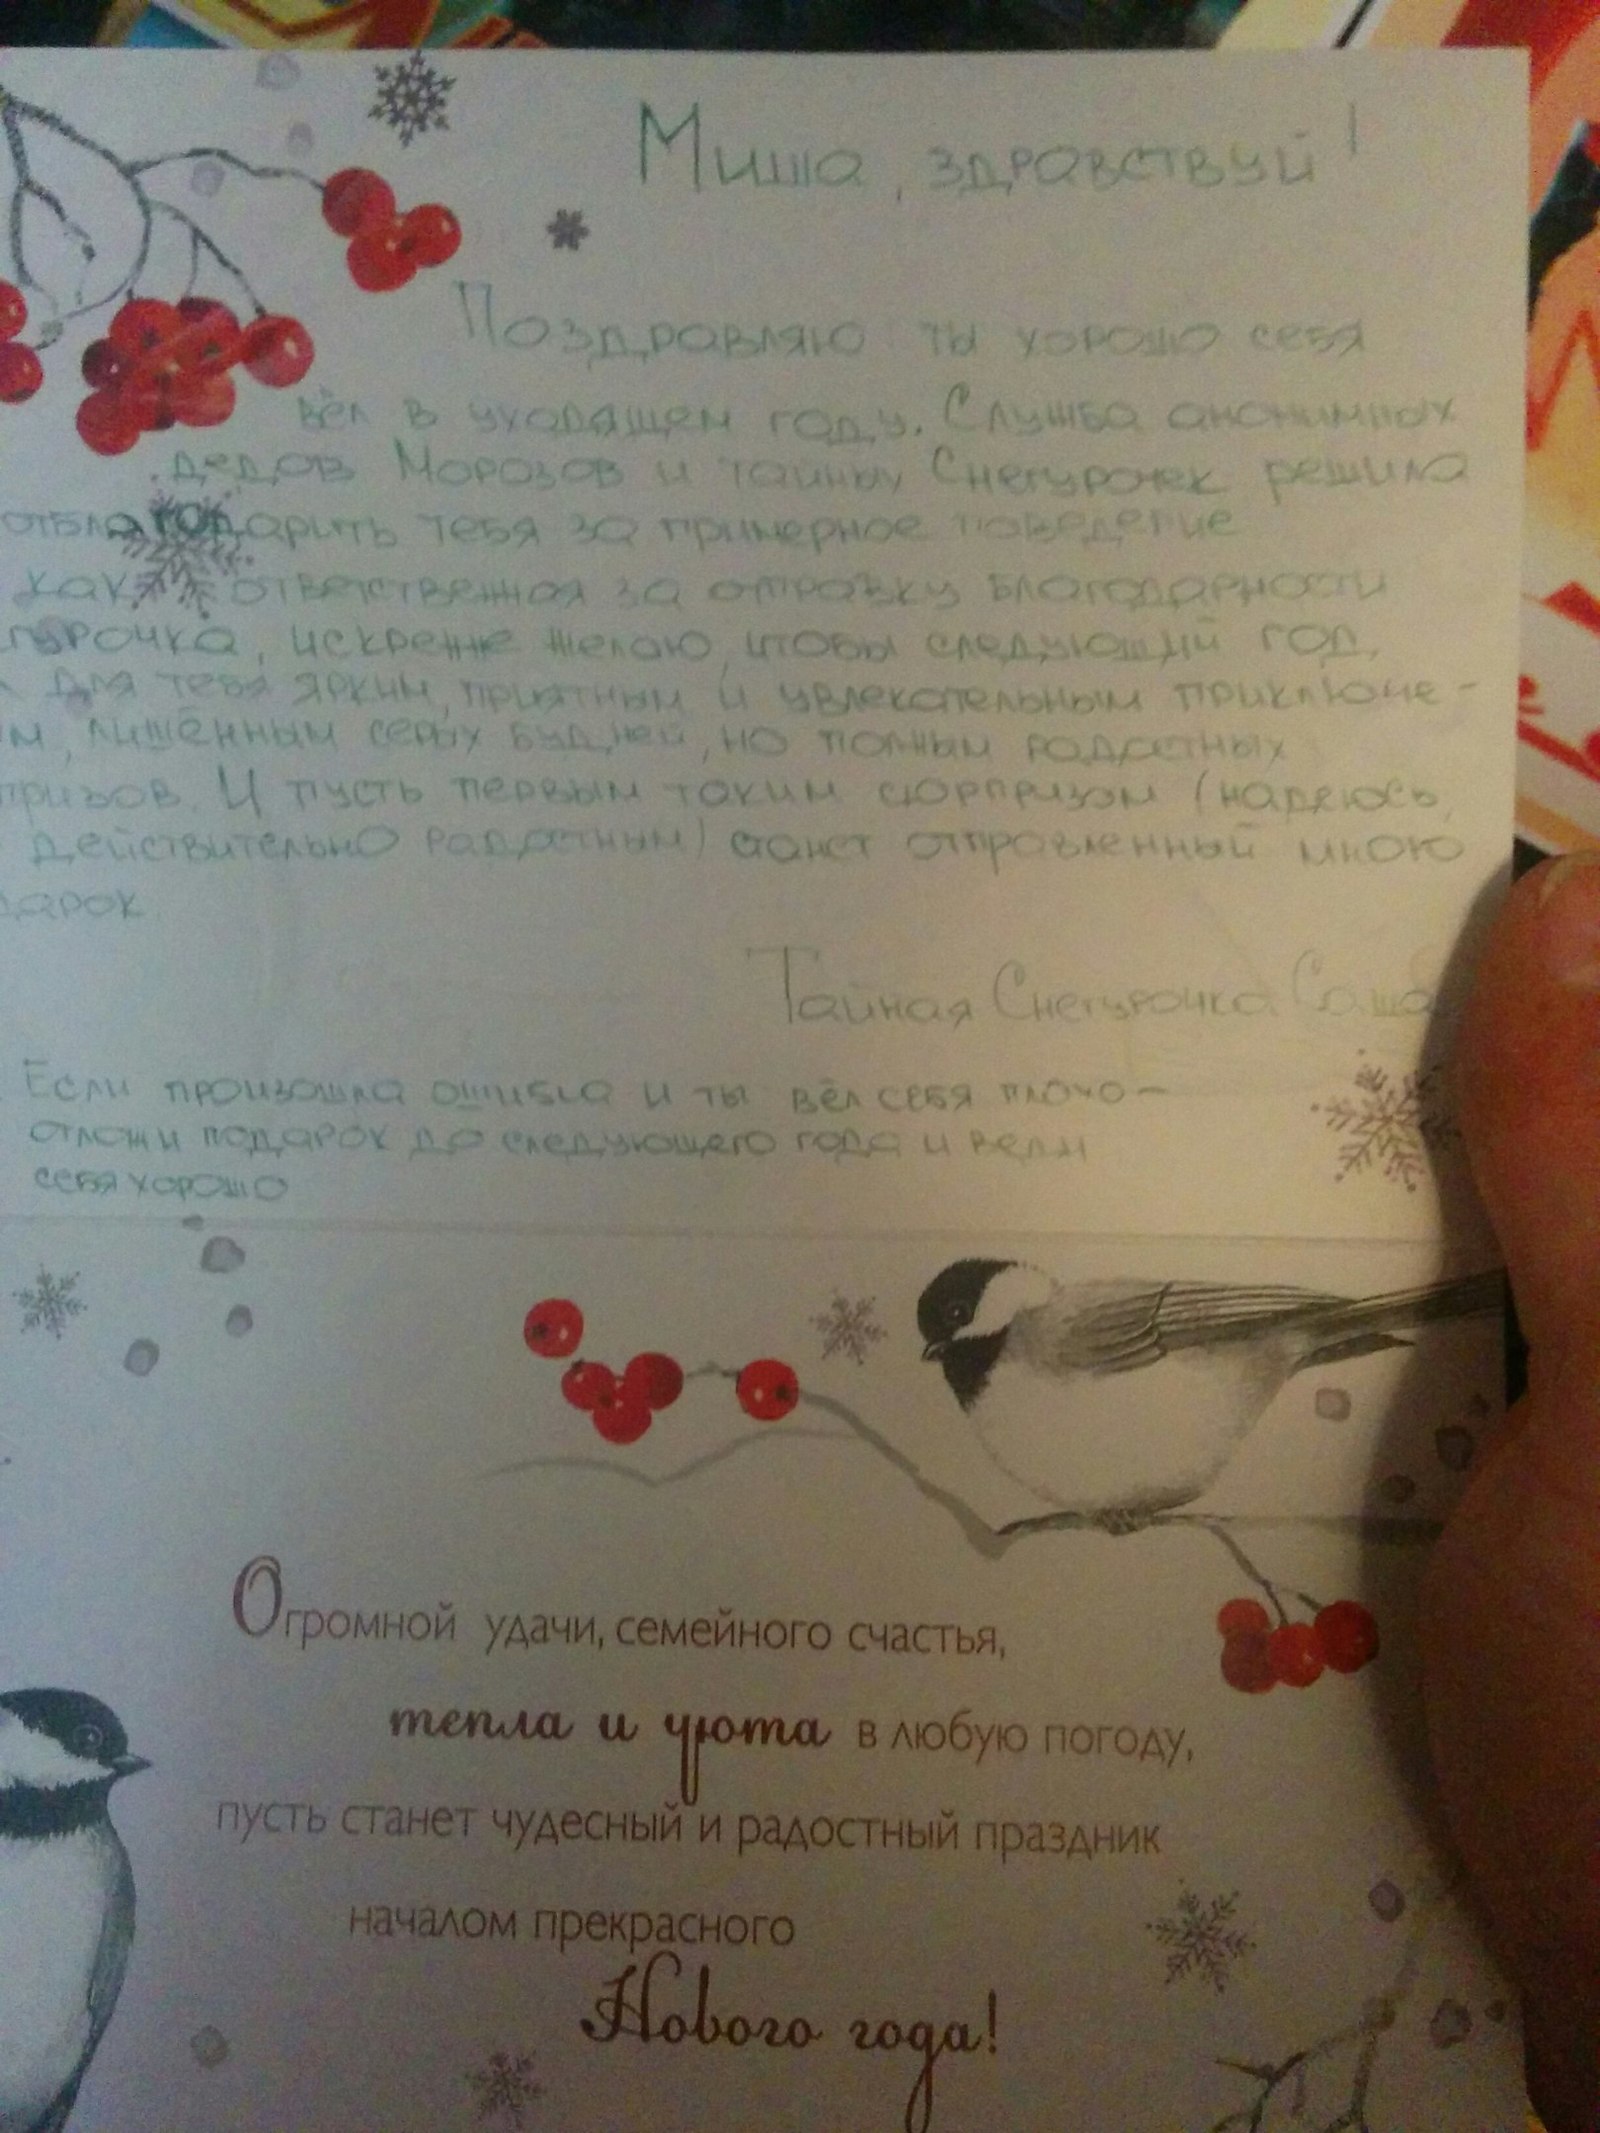 Миша, здравствуй!
Поздравляю ты хорошо себя
вёл в уходящем году. Служба анонимных
дедов Морозов и тайных Снегурочек решила
отблагодарить тебя за примерное поведение
как ответственная за отправку благодарности
гурочка, искренне желаю, чтобы следующий год,
для тебя ярким, приятным и увлекательным приключе-
м, лишённым серых будней, но полным радостных
призов. И пусть первым таким сюрпризом (надеюсь,
действительно радостным) станет отправленный мною
дарок
Тайная Снегурочка Саша
Если произошла ошибка и ты вёл себя плохо-
отложи подарок до следующего года и веди
себя хорошо
Огромной удачи, семейного счастья,
тепла и уюта в любую погоду,
пусть станет чудесный и радостный праздник
началом прекрасного
Нового года!